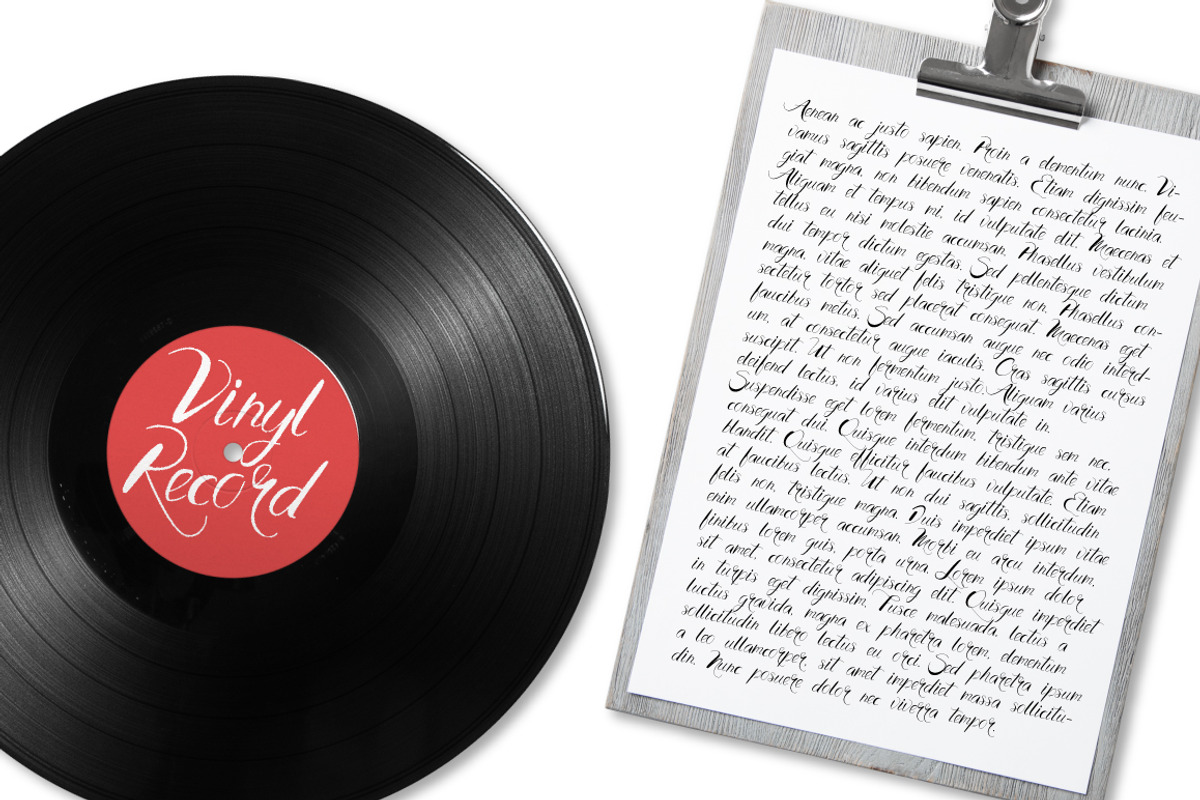 Vinyl
Record
Aenean ac justo sapien. Proin a elementum nunc. Vi-
vamus sagittis posuere venenatis. Etiam dignissim feu-
giat magna, non bibendum sapien consectetur lacinia.
Aliquam et tempus mi, id vulputate elit. Maecenas et
tellus eu nisi molestie accumsan. Phasellus vestibulum
dui tempor dictum egestas. Sed pellentesque dictum
magna, vitae aliquet felis tristique non. Phasellus con-
sectetur tortor sed placerat consequat. Maecenas eget
faucibus metus. Sed accumsan augue nec odio interd-
um, at consectetur augue iaculis. Cras sagittis cursus
suscipit. Ut non fermentum justo. Aliquam varius
eleifend lectus, id varius elit vulputate in.
Suspendisse eget lorem fermentum, tristique sem nec,
consequat dui. Quisque interdum bibendum ante vitae
blandit. Quisque efficitur faucibus vulputate. Etiam
at faucibus lectus. Ut non dui sagittis, sollicitudin
felis non, tristique magna. Duis imperdiet ipsum vitae
enim ullamcorper accumsan. Morbi eu arcu interdum,
finibus lorem quis, porta urna. Lorem ipsum dolor
sit amet, consectetur adipiscing elit. Quisque imperdiet
in turpis eget dignissim. Fusce malesuada, lectus a
luctus gravida, magna ex pharetra lorem, elementum
sollicitudin libero lectus eu orci. Sed pharetra ipsum
a leo ullamcorper, sit amet imperdiet massa sollicitu-
din. Nunc posuere dolor nec viverra tempor.